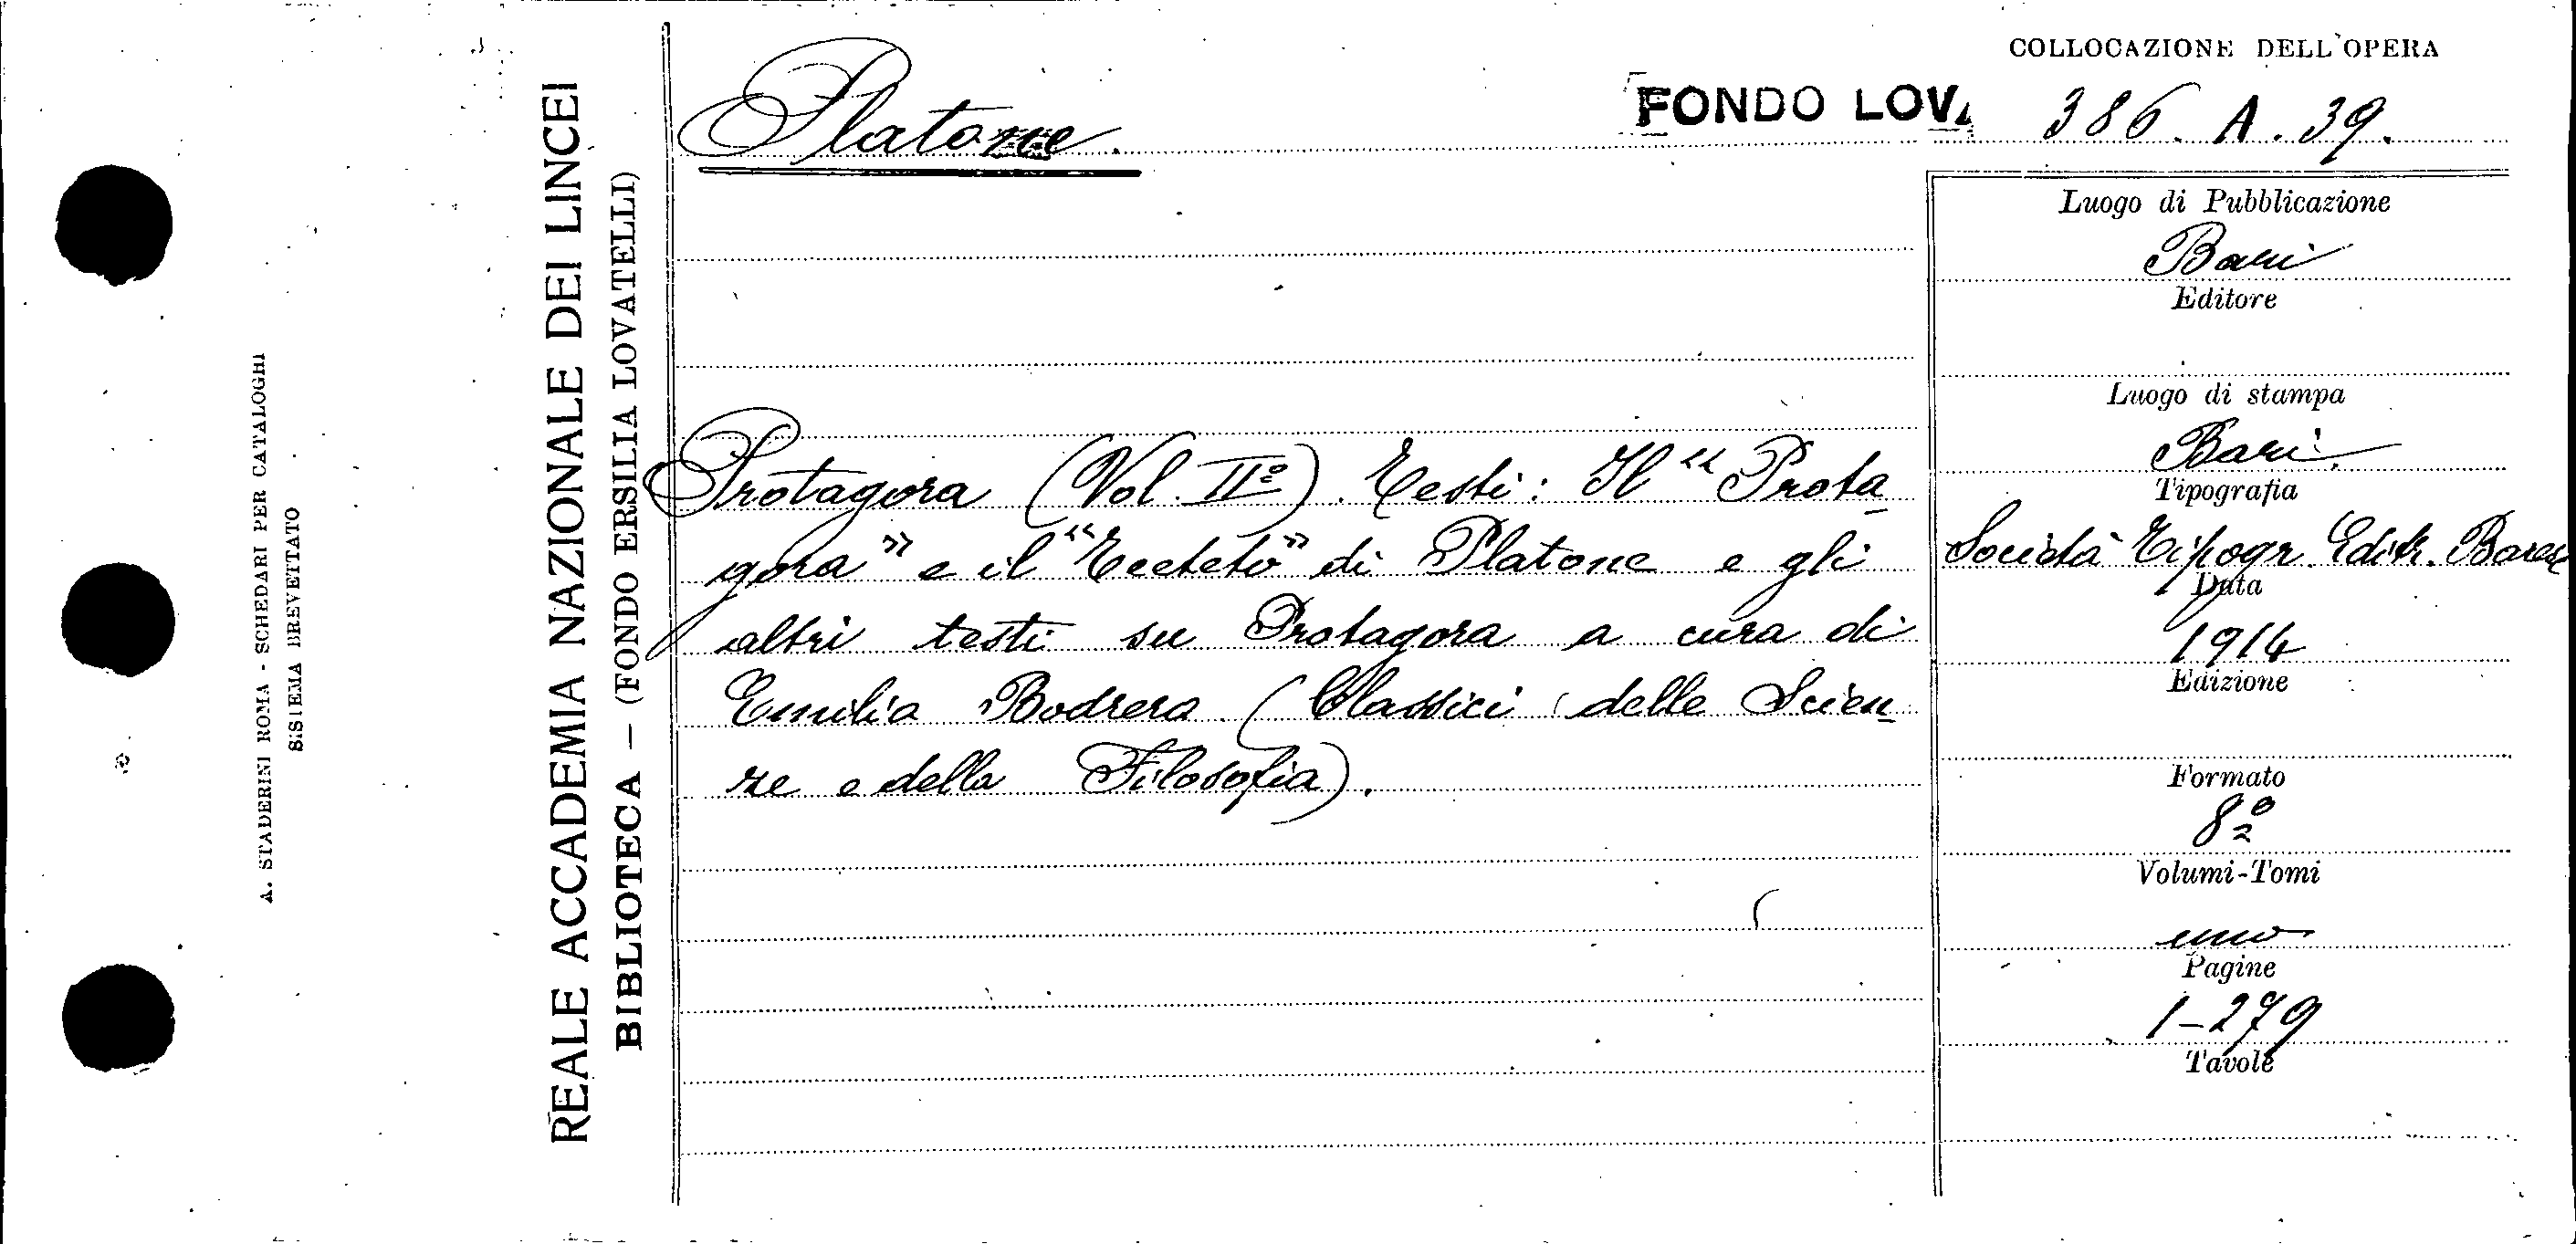 A. STADERINI ROMA - SCHEDARI PER CATALOGHI
SISTEMA BREVETTATO
REALE ACCADEMIA NAZIONALE DEI LINCEI
BIBLIOTECA — (FONDO ERSILIA LOVATELLI)
Platone.
FONDO LOVA
COLLOCAZIONE DELL'OPERA
386. A. 39.
Protagora (Vol. IIº). Testi: Il "Prota
gora" e il "Teeteto" di Platone e gli
altri testi su Protagora a cura di
Emilia Bodrera. (Classici delle Scien
ze e della Filosofia).
Luogo di Pubblicazione
Bari
Editore
Luogo di stampa
Bari.
Tipografia
Società Tipogr. Editr. Barese
Data
1914
Edizione
Formato
8º
Volumi-Tomi
uno
Pagine
1-279
Tavole